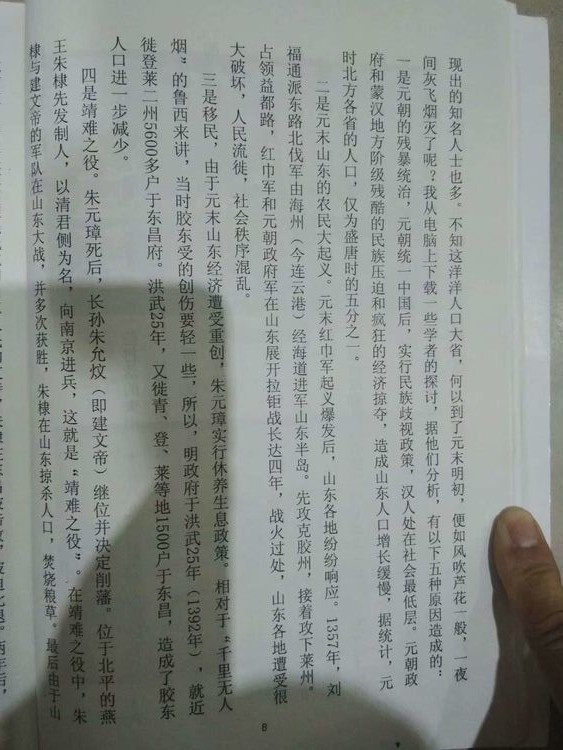 现出的知名人士也多。不知这洋洋人口大省，何以到了元末明初，便如风吹芦花一般，一夜
间灰飞烟灭了呢？我从电脑上下载一些学者的探讨，据他们分析，有以下五种原因造成的：
一是元朝的残暴统治，元朝统一中国后，实行民族歧视政策，汉人处在社会最低层。元朝政
府和蒙汉地方阶级残酷的民族压迫和疯狂的经济掠夺，造成山东人口增长缓慢，据统计，元
时北方各省的人口，仅为盛唐时的五分之一。
二是元末山东的农民大起义。元末红巾军起义爆发后，山东各地纷纷响应。1357年，刘
福通派东路北伐军由海州（今连云港）经海道进军山东半岛。先攻克胶州，接着攻下莱州。
占领益都路，红巾军和元朝政府军在山东展开拉钜战长达四年，战火过处，山东各地遭受很
大破坏，人民流徙，社会秩序混乱。
三是移民，由于元末山东经济遭受重创，朱元璋实行休养生息政策。相对于“千里无人
烟”的鲁西来讲，当时胶东受的创伤要轻一些，所以，明政府于洪武25年（1392年），就近
徙登莱二州5600多户于东昌府。洪武25年，又徙青、登、莱等地1500户于东昌，造成了胶东
人口进一步减少。
四是靖难之役。朱元璋死后，长孙朱允炆（即建文帝）继位并决定削藩。位于北平的燕
王朱棣先发制人，以清君侧为名，向南京进兵，这就是“靖难之役”。在靖难之役中，朱
棣与建文帝的军队在山东大战，并多次获胜，朱棣在山东掠杀人口，焚烧粮草。最后由于山
两年后，
8